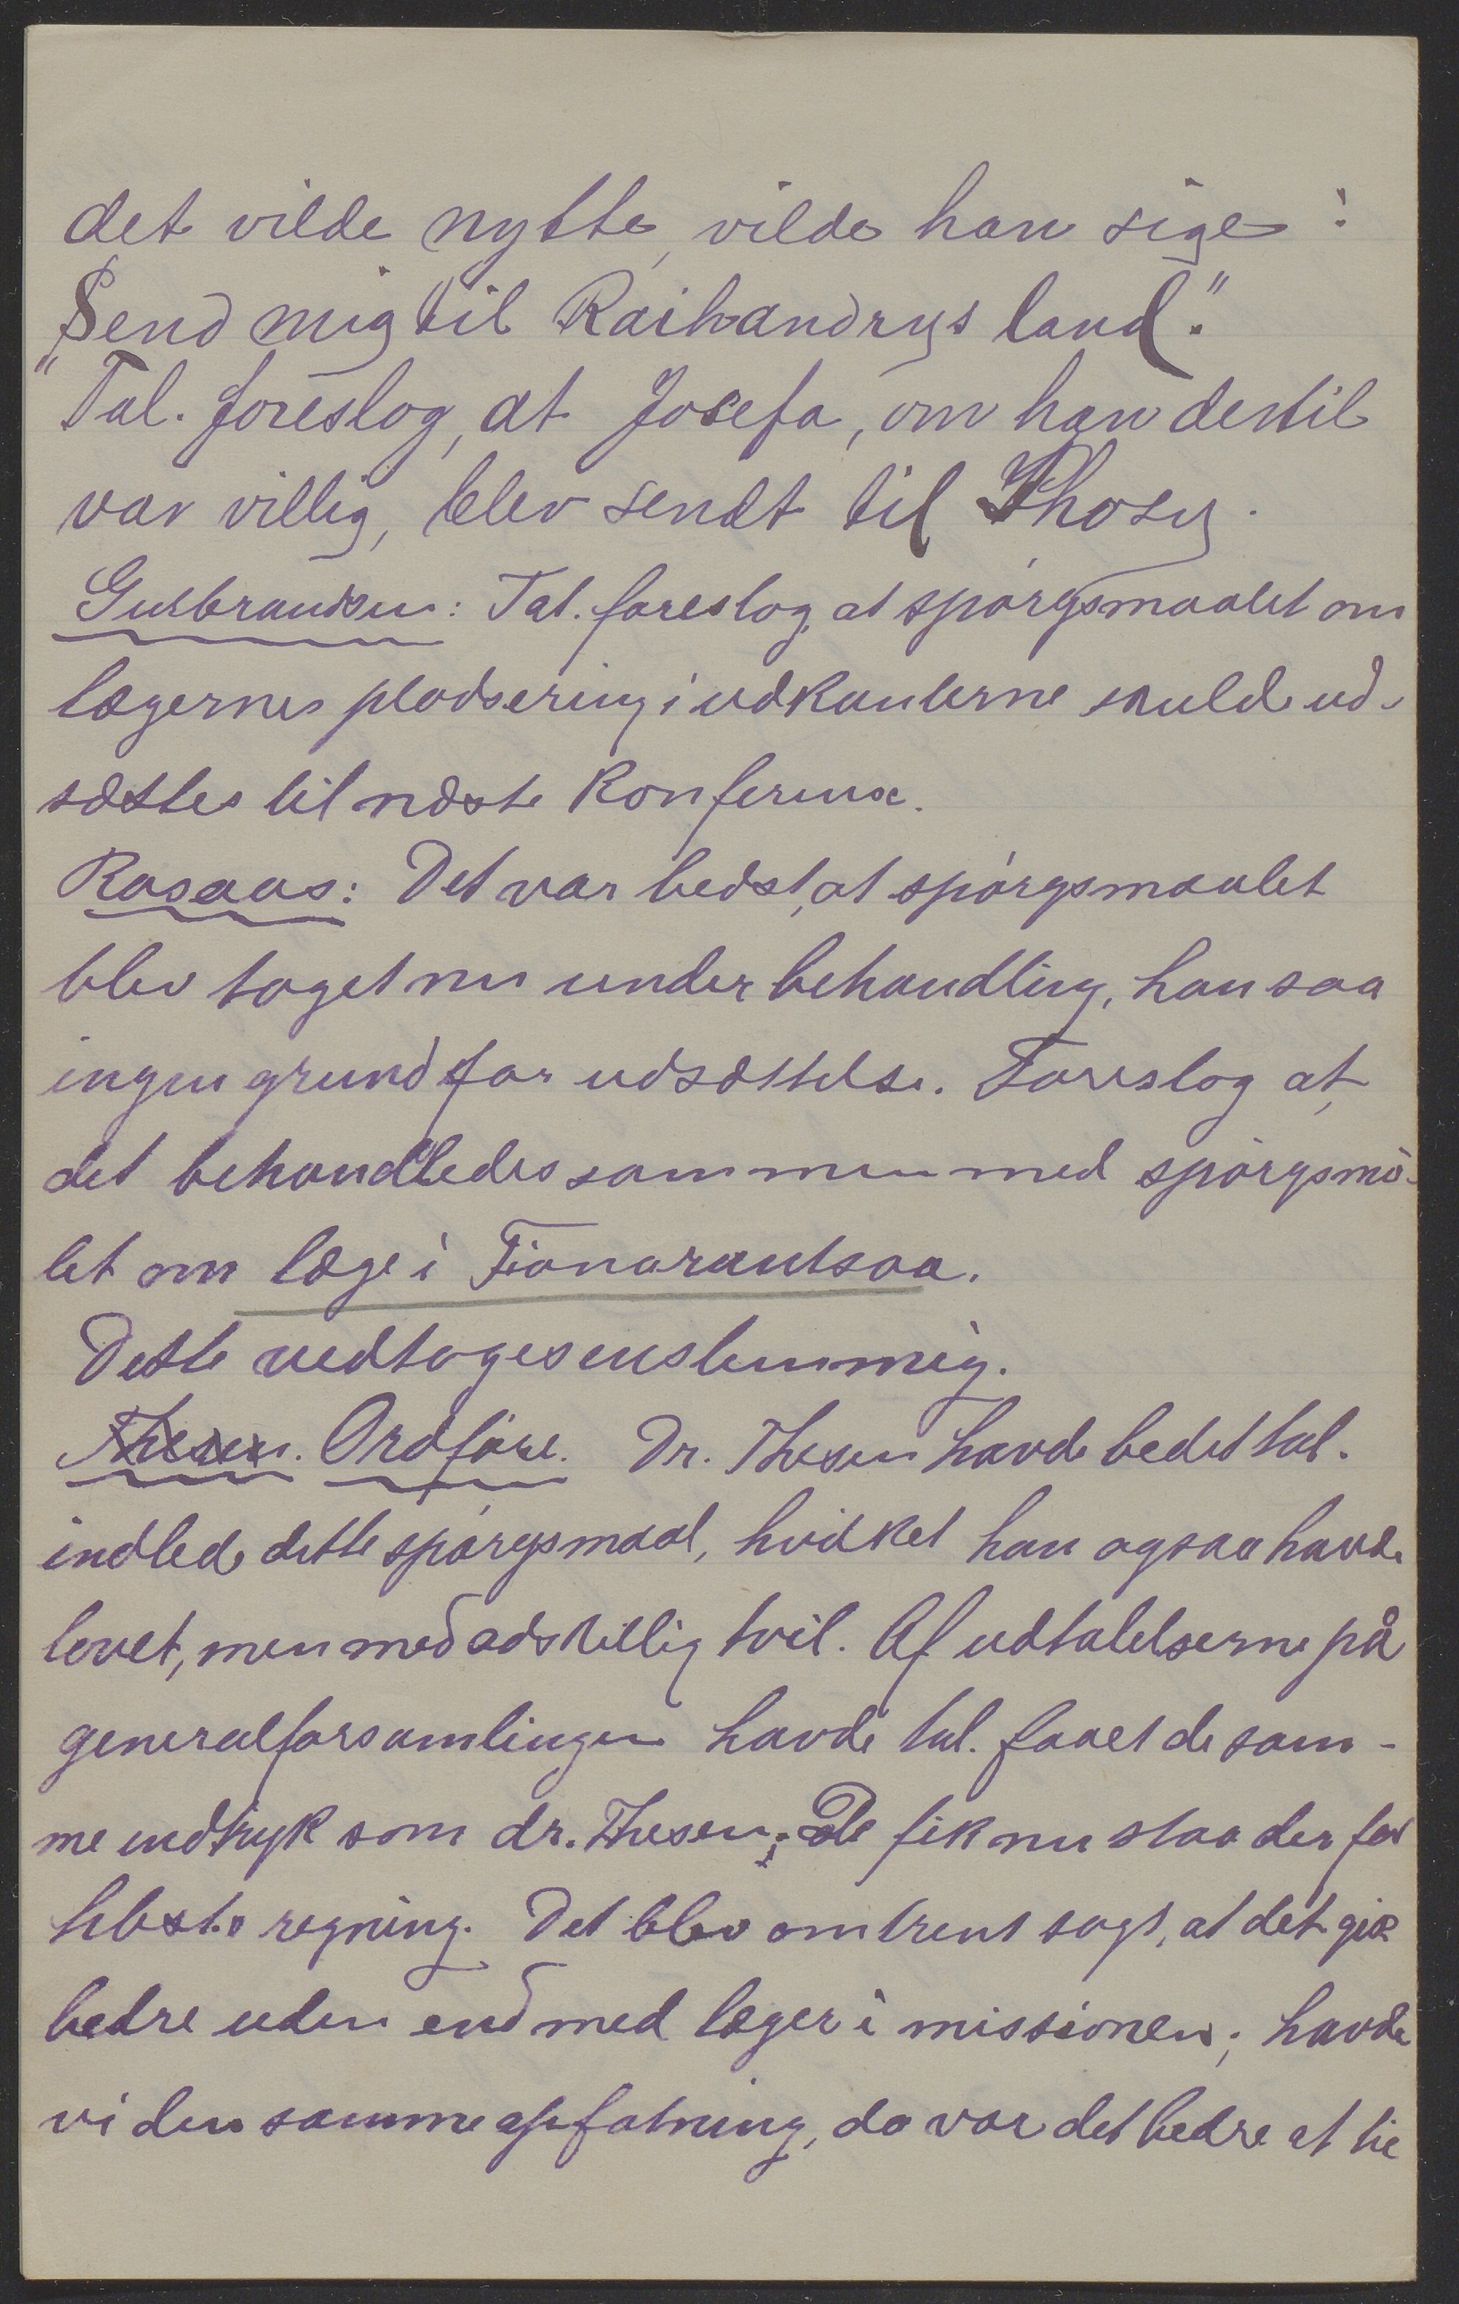 det vilde nytte, vilde han sige:
"Send mig til Raibandrys land."
Tal. foreslog, at Josefa, om han dertil
var villig, blev sendt til Ihosy.
Gulbrandsen: Tal. foreslog, at spørgsmaalet om
lægernes pladsering i udkanterne skulde ud-
sættes til næste Konferense.
Rosaas: Det var bedst, at spørgsmaalet
blev taget nu under behandling, han saa
ingen grund for udsættelse. Foreslog at
det behandledes sammen med spørgsmå-
let om læge i Fianarantsoa.
Dette vedtoges enstemmig.
Thesen. Ordføre. Dr. Thesen havde bedet tal.
indlede dette spørgsmaal, hvilket han ogsaa havde
lovet, men med adskillig tvil. Af udtalelserne på
generalforsamlingen havde tal. faaet de sam-
me indtryk som dr. Thesen; De fik nu staa der for
hvis regning. Det blev omtrent sagt, at det gik
bedre uden end med læger i missionen; havde
vi den samme opfatning, da var det bedre at tie